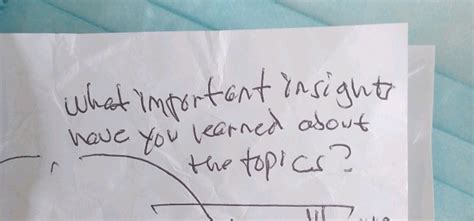 what important insights
have you learned about
the topics?